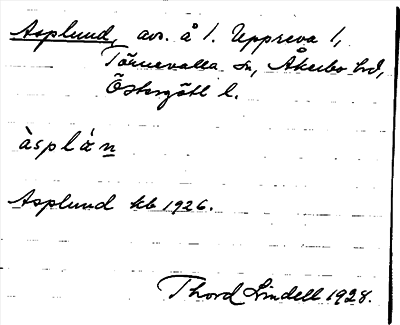 Asplund, avs. å 1. Uppreva 1,
Törnevalla sn, Åkerbo hd,
Östergötl l.
àsplán
Asplund kb 1926.
Thord Lindell 1928.